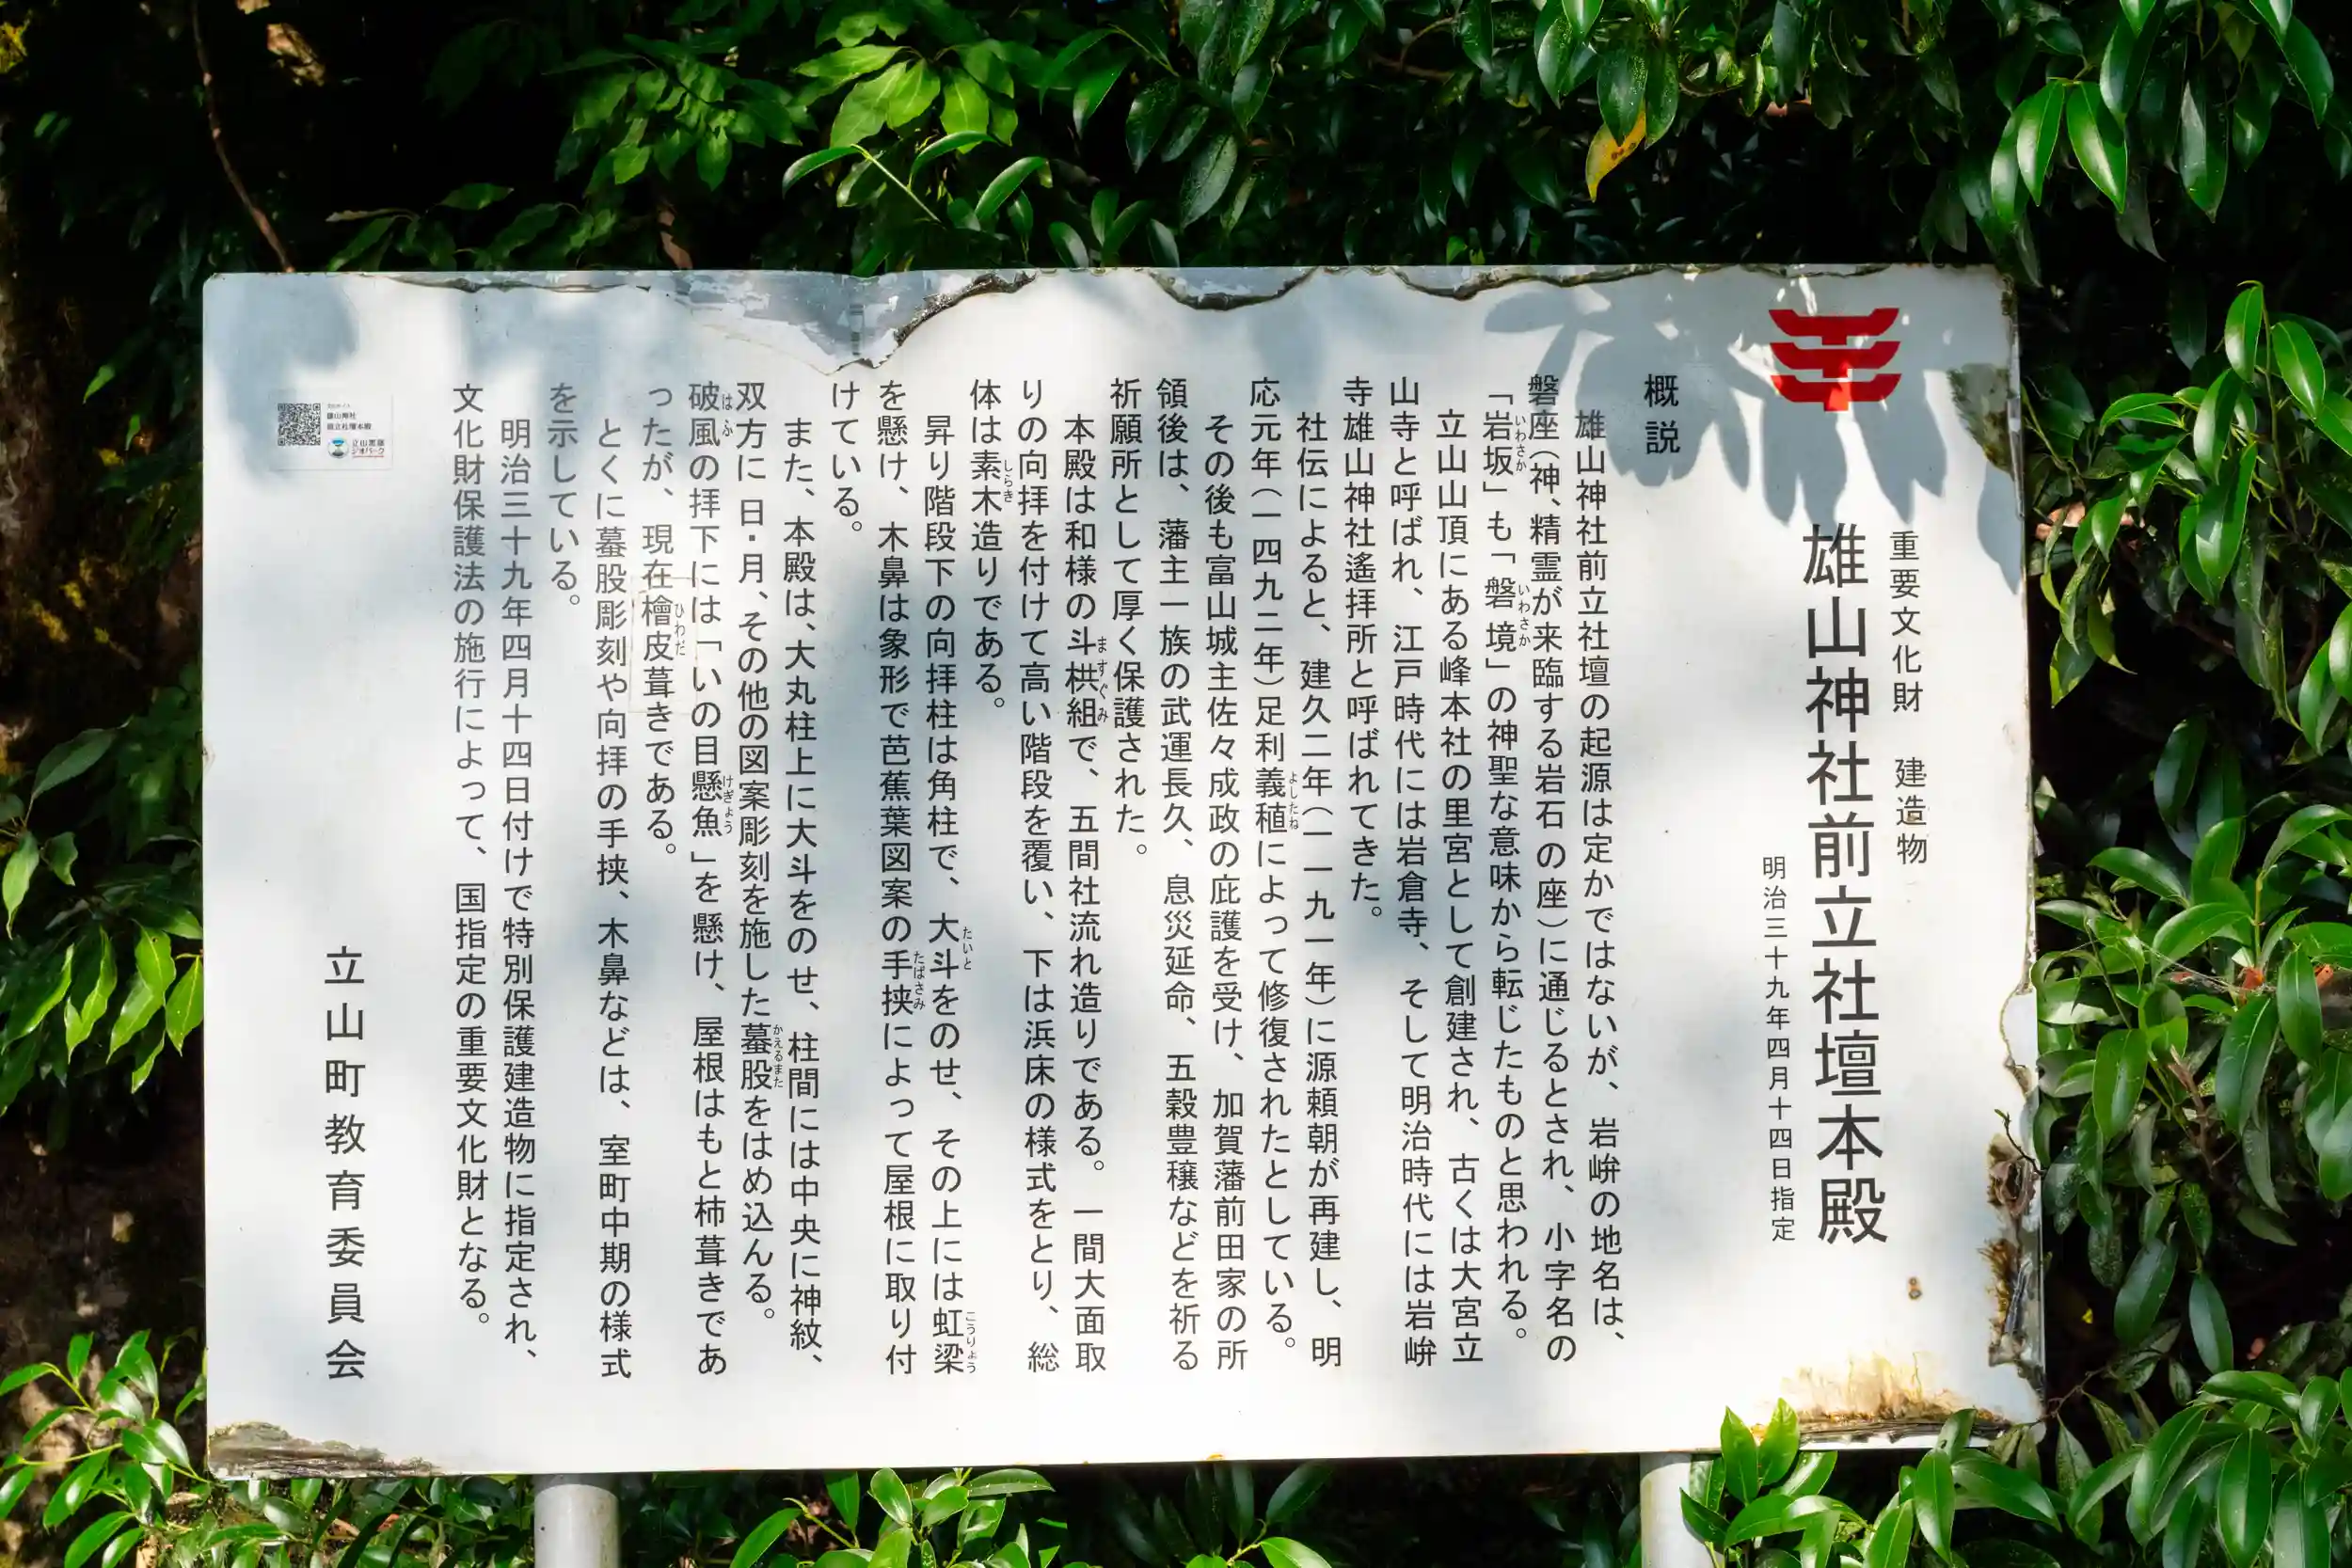 重要文化財　建造物
雄山神社前立社壇本殿
明治三十九年四月十四日指定
概説
雄山神社前立社壇の起源は定かではないが、岩峅の地名は、
磐座（神、精霊が来臨する岩石の座）に通じるとされ、小字名の
「岩坂」も「磐境」の神聖な意味から転じたものと思われる。
いわさか
いわさか
立山山頂にある峰本社の里宮として創建され、古くは大宮立
山寺と呼ばれ、江戸時代には岩倉寺、そして明治時代には岩峅
寺雄山神社遙拝所と呼ばれてきた。
社伝によると、建久二年（一一九一年）に源頼朝が再建し、明
応元年（一四九二年）足利義稙によって修復されたとしている。
よしたね
その後も富山城主佐々成政の庇護を受け、加賀藩前田家の所
領後は、藩主一族の武運長久、息災延命、五穀豊穣などを祈る
祈願所として厚く保護された。
本殿は和様の斗栱組で、五間社流れ造りである。一間大面取
ますぐみ
りの向拝を付けて高い階段を覆い、下は浜床の様式をとり、総
体は素木造りである。
しらき
昇り階段下の向拝柱は角柱で、大斗をのせ、その上には虹梁
たいと
こうりょう
を懸け、木鼻は象形で芭蕉葉図案の手挟によって屋根に取り付
たばさみ
けている。
また、本殿は、大丸柱上に大斗をのせ、柱間には中央に神紋、
双方に日・月、その他の図案彫刻を施した蟇股をはめ込んる。
かえるまた
破風の拝下には「いの目懸魚」を懸け、屋根はもと柿葺きであ
はふ
けぎょう
ったが、現在檜皮葺きである。
ひわだ
とくに蟇股彫刻や向拝の手挟、木鼻などは、室町中期の様式
を示している。
明治三十九年四月十四日付けで特別保護建造物に指定され、
文化財保護法の施行によって、国指定の重要文化財となる。
立山町教育委員会
雄山神社
前立社壇本殿
立山黒部
ジオパーク